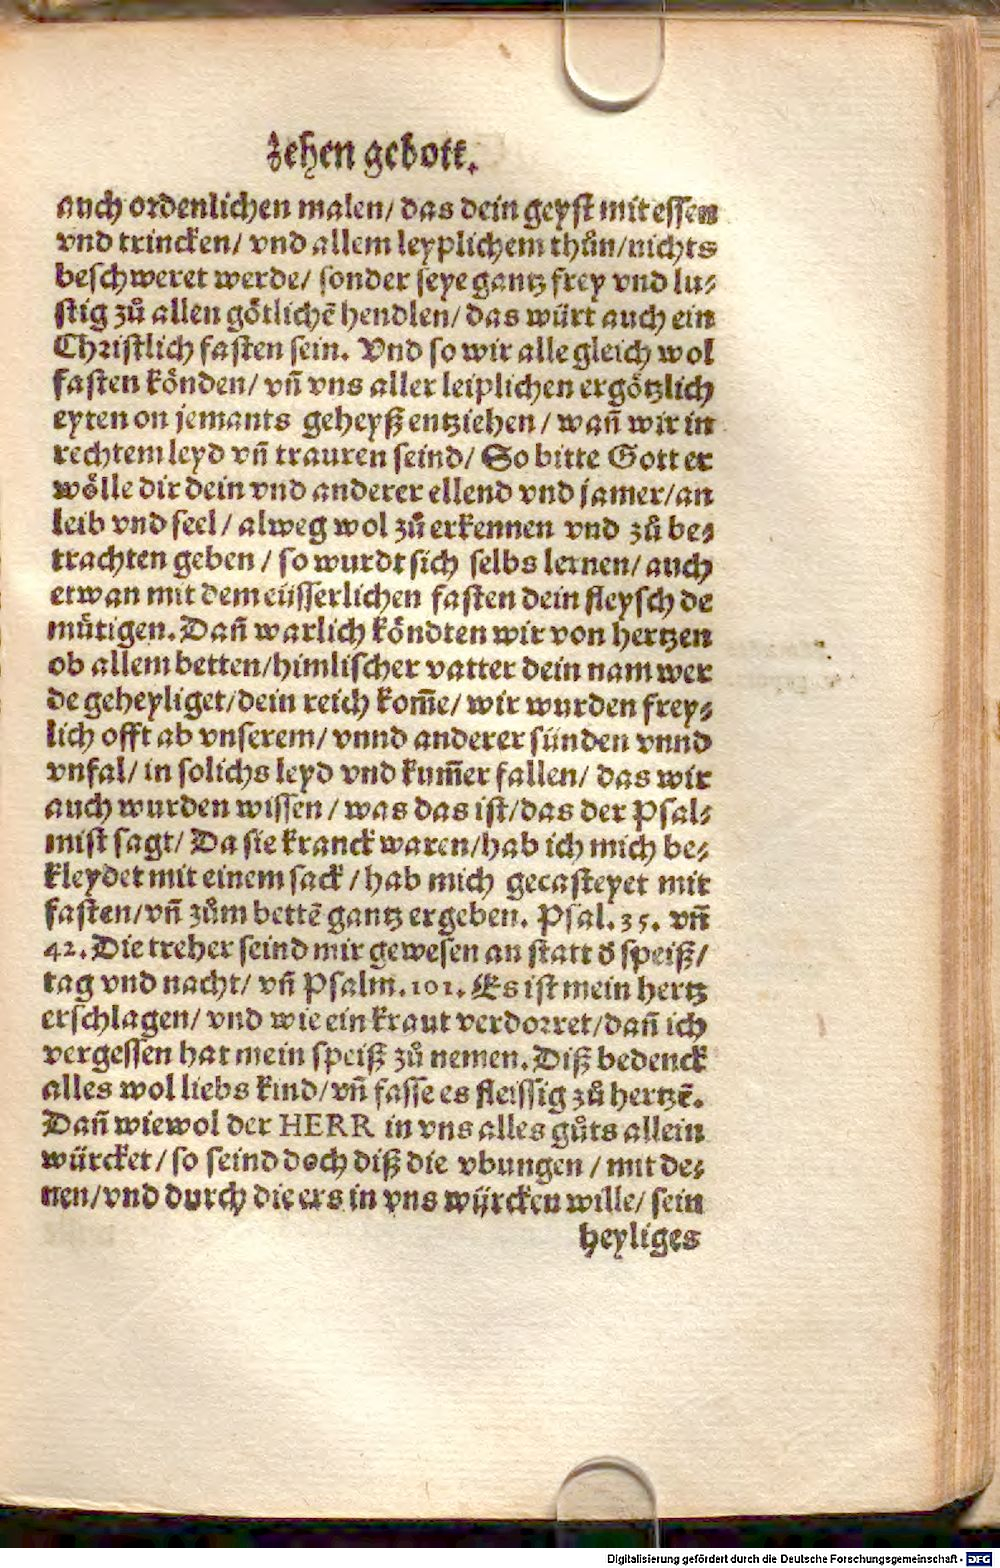 zehen gebott.
auch ordenlichen malen/ das dein geyst mit essen
vnd trincken/ vnd allem leyplichem thůn/nichts
beschweret werde/ sonder seye gantz frey vnd lu⸗
stig zů allen götlichē hendlen/ das würt auch ein
Christlich fasten sein. Vnd so wir alle gleich wol
fasten könden/ vñ vns aller leiplichen ergötzlich
eyten on jemants geheyß entziehen/ wañ wir in
rechtem leyd vñ trauren seind/ So bitte Gott er
wölle dir dein vnd anderer ellend vnd jamer/an
leib vnd seel/ alweg wol zů erkennen vnd zů be⸗
trachten geben/ so wurdt sich selbs lernen/ auch
etwan mit dem eüsserlichen fasten dein fleysch de
mütigen. Dañ warlich köndten wir von hertzen
ob allem betten/himlischer vatter dein nam wer
de geheyliget/dein reich kom̄e/ wir wurden frey⸗
lich offt ab vnserem/ vnnd anderer sünden vnnd
vnfal/ in solichs leyd vnd kum̄er fallen/ das wir
auch wurden wissen/ was das ist/das der Psal⸗
mist sagt/ Da sie kranck waren/hab ich mich be⸗
kleydet mit einem sack/ hab mich gecasteyet mit
fasten/vñ zům bettē gantz ergeben. Psal. 35. vñ
42. Die treher seind mir gewesen an statt d̄ speiß/
tag vnd nacht/ vñ Psalm. 101. Es ist mein hertz
erschlagen/ vnd wie ein kraut verdorret/dañ ich
vergessen hat mein speiß zů nemen. Diß bedenck
alles wol liebs kind/vñ fasse es fleissig zů hertzē.
Dañ wiewol der HERR in vns alles gůts allein
würcket/ so seind doch diß die vbungen/ mit de⸗
nen/vnd durch die ers in vns würcken wille/ sein
heyliges
Digitalisierung gefördert durch die Deutsche Forschungsgemeinschaft - DFG